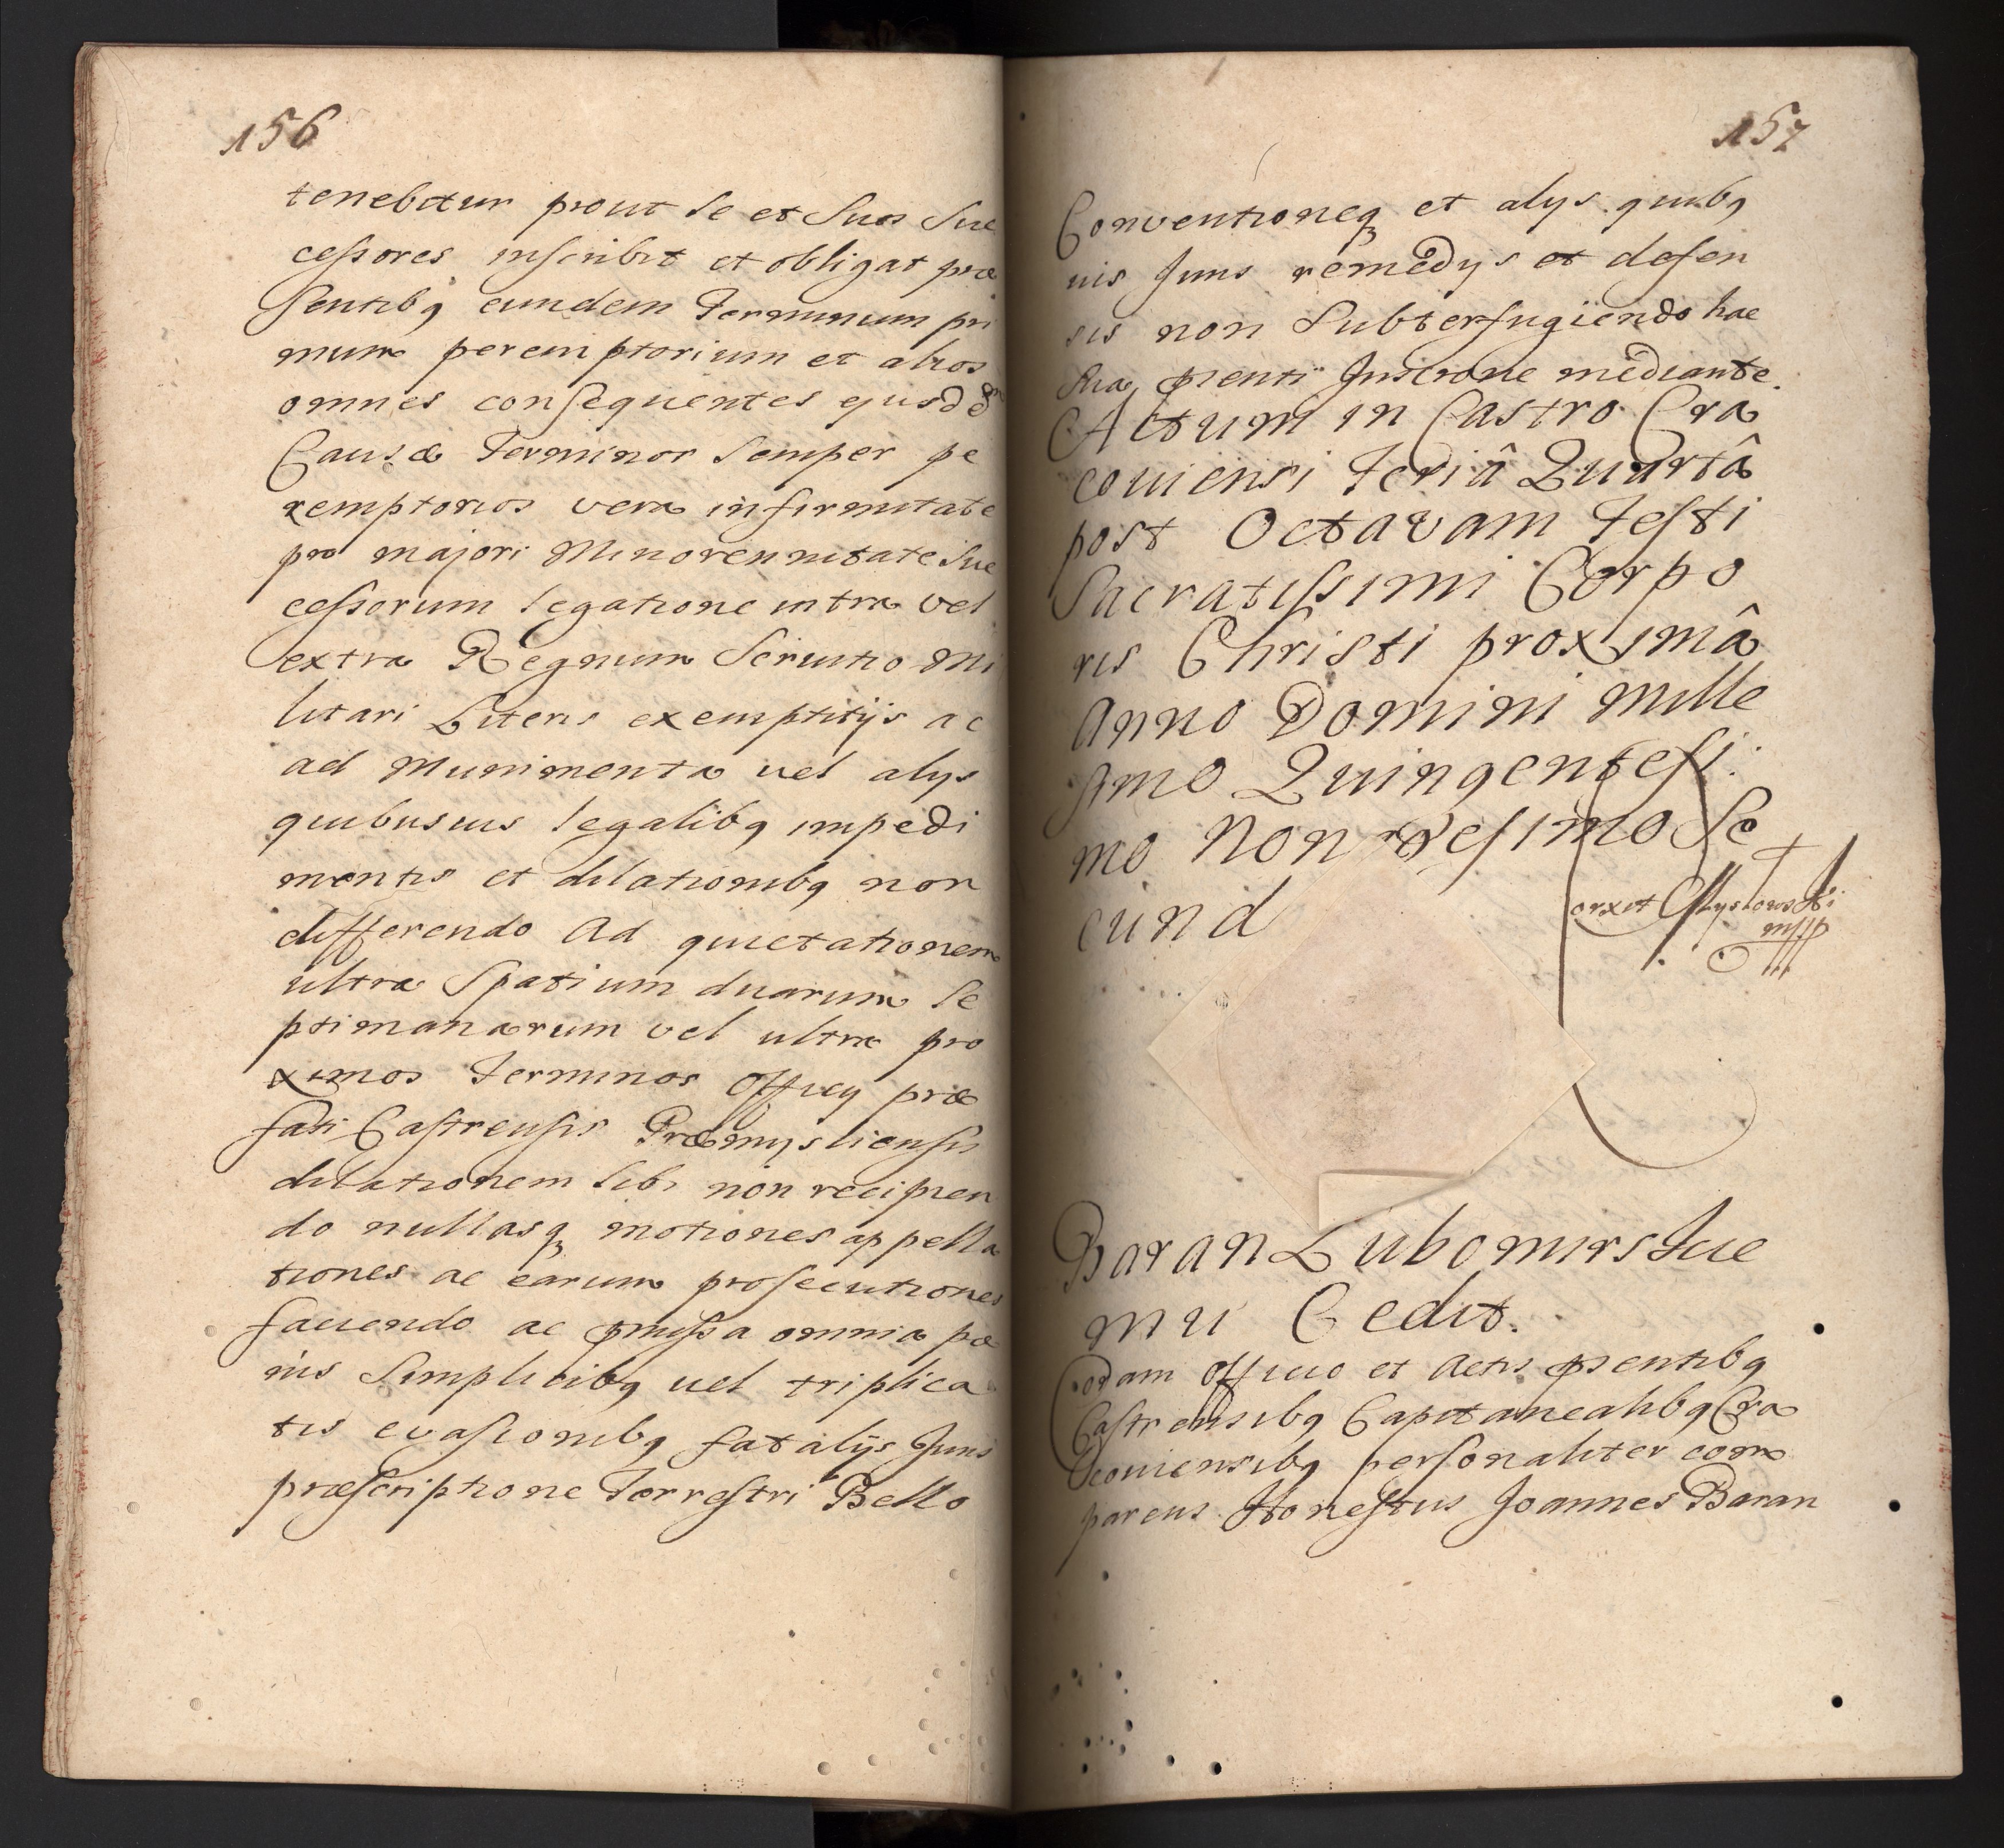 156
tenebitur prout se et Suos Suc
cessores inscribit et obligat præ
sentibq eundem Terminum pri
mum peremptorium et alios
omnes consequentes ejusdem
Causæ Terminos semper pe
remptorios vera infirmitate
pro majori Minorennitate Suc
cessorum legatione intra vel
extra Regnum Servitio Mi
litari Literis exemptitijs ac
ad Munimenta vel alys
quibusvis legalibq impedi
mentis et dilationibq non
differendo Ad quietationem
ultra Spatium duarum Se
ptimanarum vel ultra pro
ximos Terminos Officy præ
fati Castrensis Præmysliensis
dilationem sibi non recipien
do nullasq motiones appella
tiones ac earum prosecutiones
faciendo ac pmissa omnia pæ
nis Simplicibq vel triplica
tis evasionibq fatalijs Juris
præscriptione Terrestri Bello
157
Conventioneq et alys quibq
vis Juris remedys et defen
sis non Subterfugiendo hac
Sua pnti Inscrione mediante.
Actum in Castro Cra
coviensi Feriâ Quartâ
post Octavam Festi
Sacratissimi Corpo
ris Christi proximâ
Anno Domini Mille
simo Quingentesi
mo Nonagesimo Se
cund
Baran Lubomirskie
mu Cedit.
Coram Officio et Actis psentibq
Castrensibq Capitanealibq Cra
coviensibq personaliter com
parens Honestus Joannes Baran